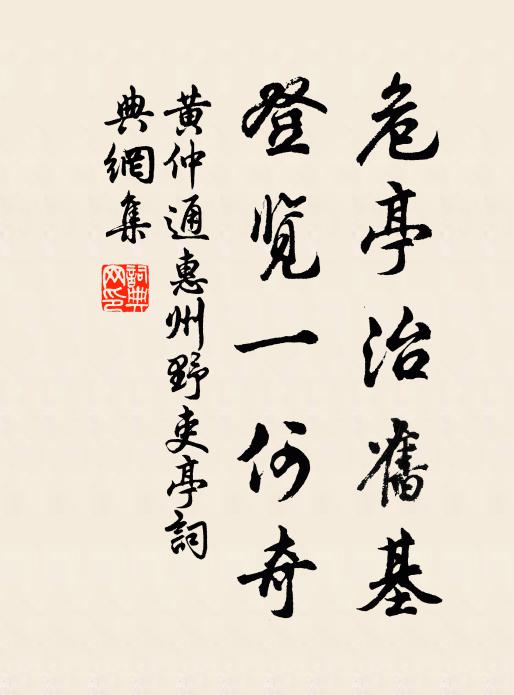 危亭治舊基
登覧一何奇
黄仲通惠州野吏亭詞
典網集
詞典網印